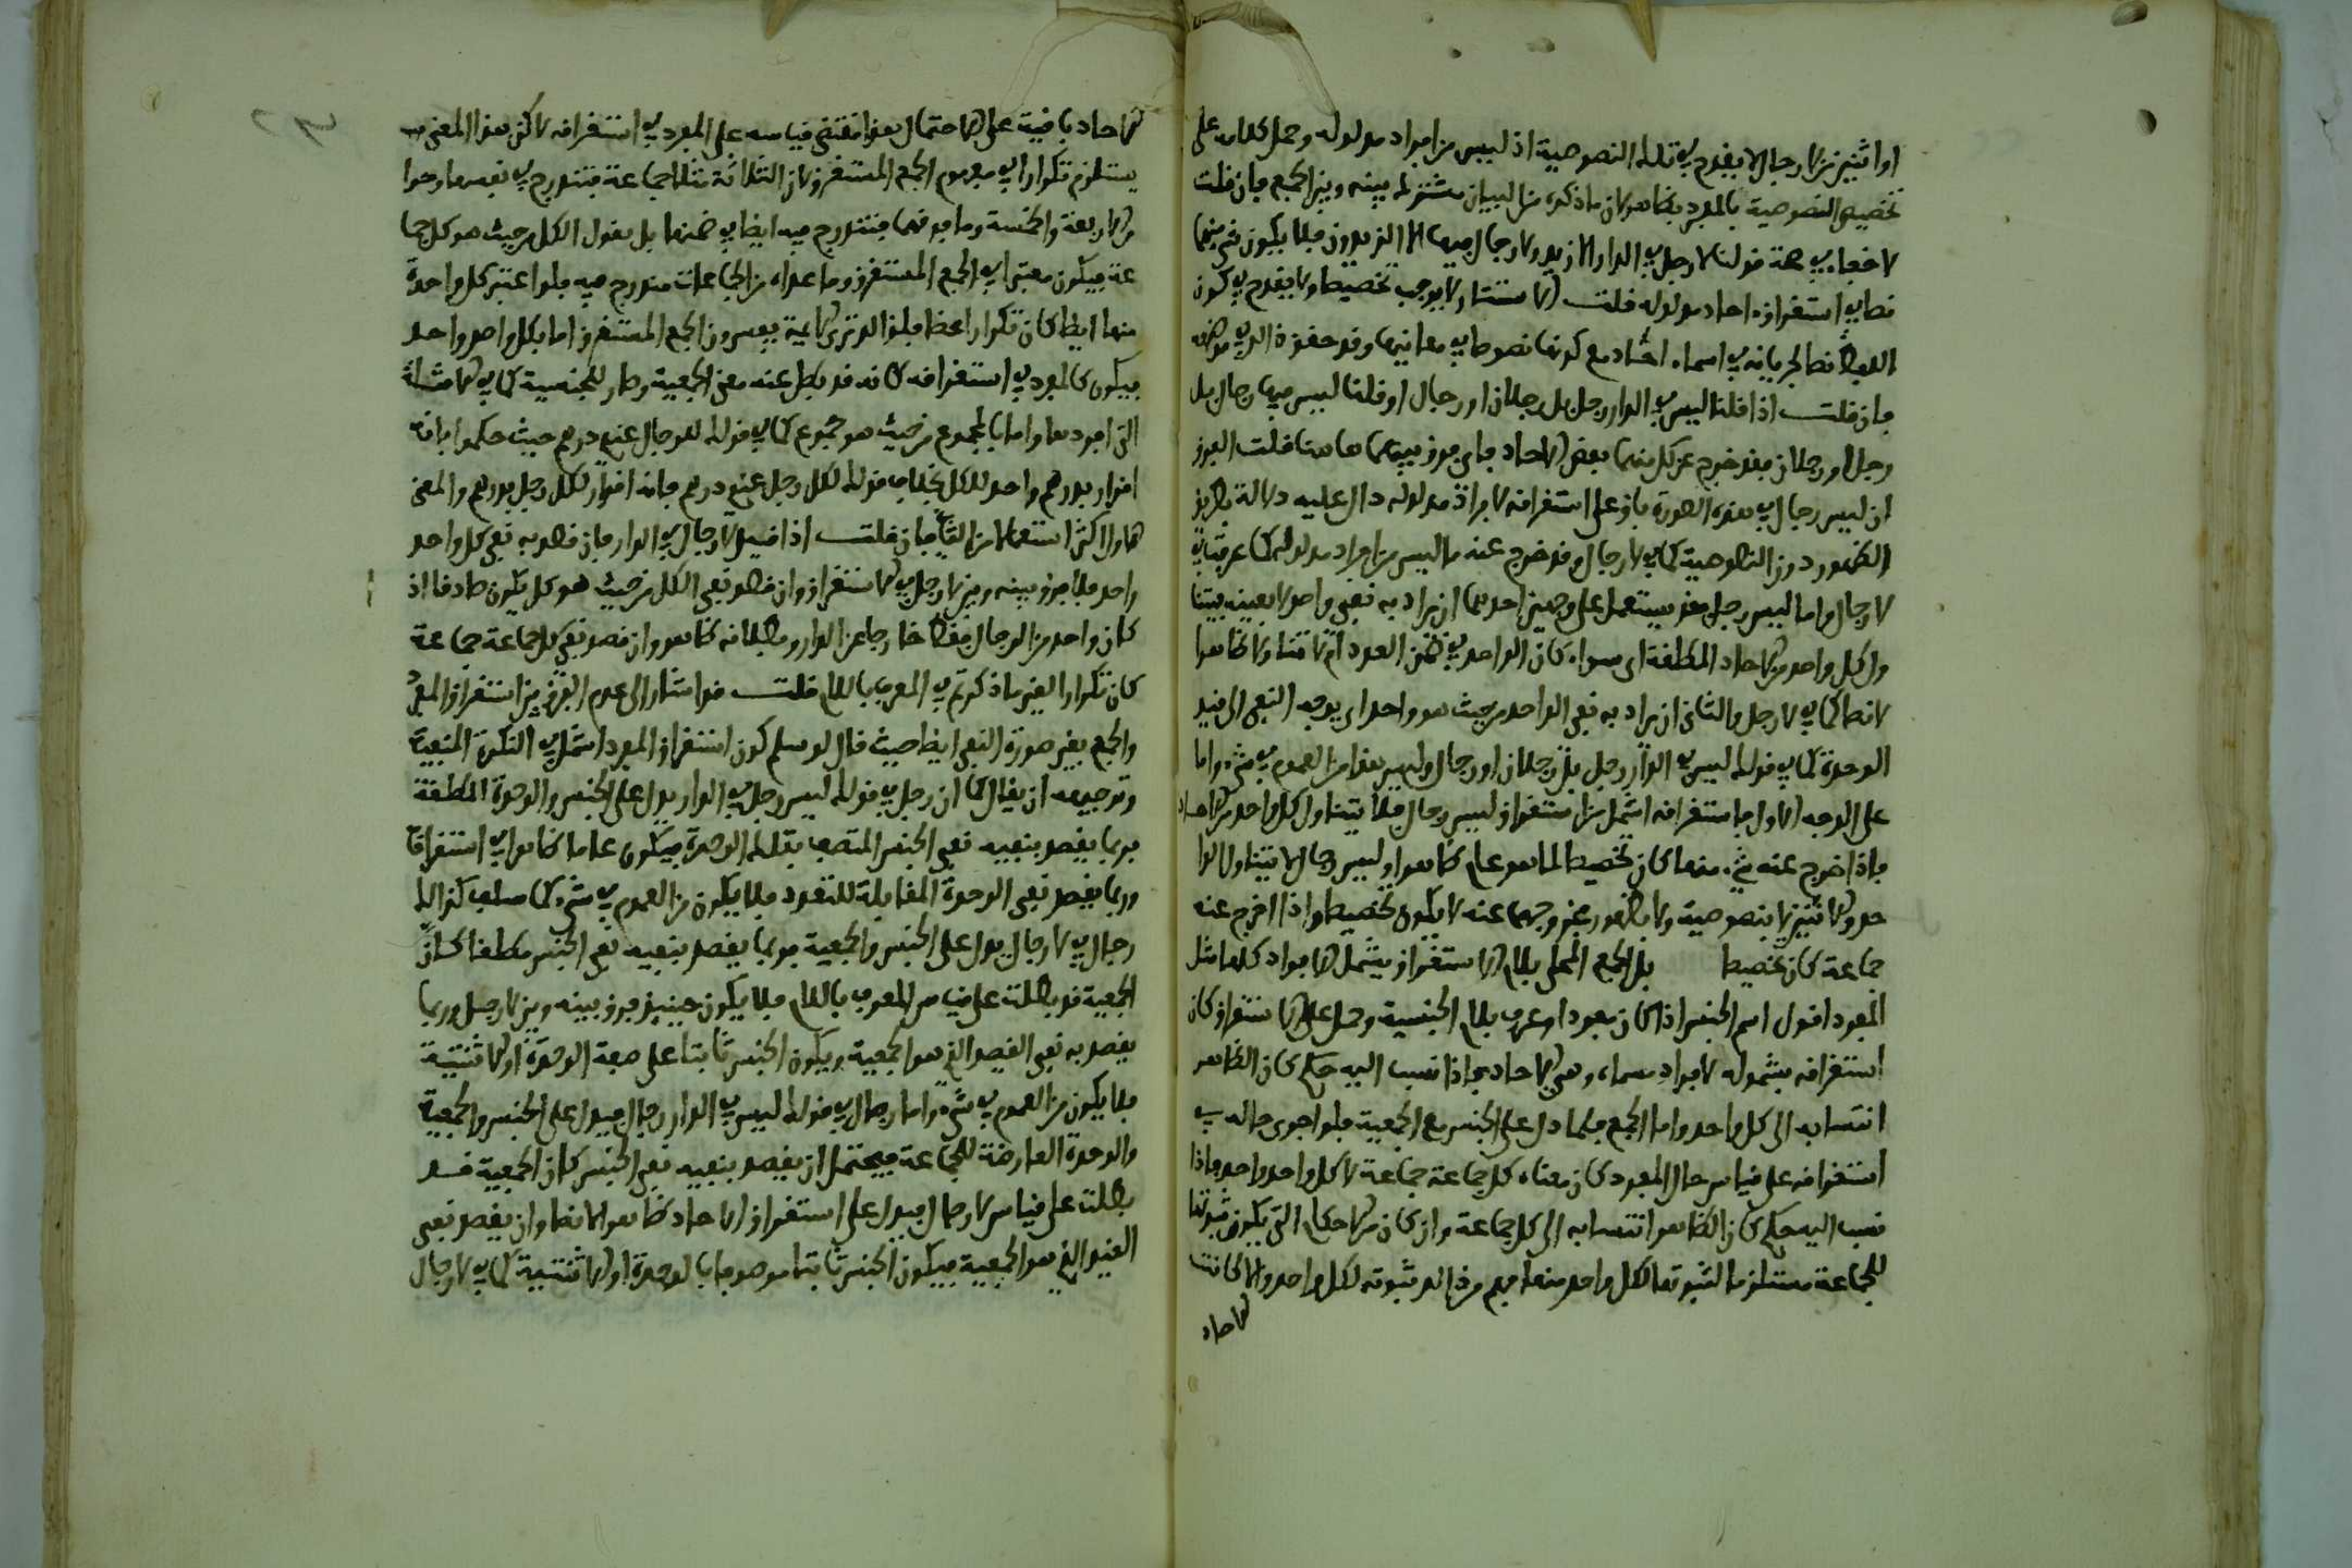 او اثنين من لا رجال لا يقدم في تلك النصوصية اذ ليس من افراد مدلوله وحمل كلامه على
تخصيص النصوصية بالمفرد بظاهر لان ما ذكره من البيان مشترك بينه وبين الجمع فان قلت
لا خفاء في صحة قولنا لا رجل في الدار الا زيد ولا رجال فيها الا الزيدون فلا يكون شيء منهما
نصا في استغراق احاد مدلوله قلت الاستثناء لا يوجب تخصيصا ولا يقدح في كون
اللفظ نصا لجريانه في اسماء العدد مع كونها نصوصا في معانيها وقد حقق ذلك في موضعه
فان قلت اذا قلنا ليس في الدار رجل بل رجلان او رجال او قلنا ليس فيها رجال بل
رجل او رجلان فقد خرج عن كل منهما بعض الاحاد فاي فرق بينهما هاهنا قلت الفرق
ان ليس رجال في هذه الصورة باق على استغراقه لافراد مدلوله دال عليه دلالة بطريق
الظهور دون النصوصية كما في لا رجال وقد خرج عنه ما ليس من افراد مدلوله كما عرفت في
لا رجال واما ليس رجل فقد يستعمل على وجهين احدهما ان يراد به نفي واحد لا بعينه
وكل واحد من الاحاد المطلقة اي سواء كان الواحد في ضمن العدد ام لا ظاهرا
لا نصا كما في لا رجل والثاني ان يراد به نفي الواحد من حيث هو واحد اي يوجه النفي الى قيد
الوحدة كما في قولك ليس في الدار رجل بل رجلان او رجال وليس هذا من العموم في شيء واما
على الوجه الاول فاستغراقه اشمل من استغراق ليس رجال فلا يتناول كل واحد من الاحاد
فاذا خرج عنه شيء منها كان تخصيصا لما هو عام ظاهرا وليس رجال لا يتناول الوا
حد والاثنين لا بنصوصية ولا بظهور فخروجهما عنه لا يكون تخصيصا واذا اخرج عنه
جماعة كان تخصيصا بل الجمع المحلى بلام الاستغراق يشمل الافراد كلها مثل
المفرد اقول اسم الجنس اذا كان مفردا وعرف بلام الجنسية وحمل على الاستغراق كان
استغراقه بشموله لافراد مسماه وهي الاحاد فاذا نسب اليه حكم كان الظاهر
انتسابه الى كل واحد واما الجمع فلما دل على الجنس مع الجمعية فلو اجري حاله في
استغراقه على قياس حال المفرد كان معناه كل جماعة جماعة لا كل واحد واحد فاذا
نسب اليه حكم كان الظاهر انتسابه الى كل جماعة وان كان من الاحكام التي يكون ثبوتها
للجماعة مستلزما لثبوتها لكل واحد منها فهم من ذلك ثبوته لكل واحد والا كانت
الاحاد
الاحاد باقية على الاحتمال هذا مقتضى قياسه على المفرد في استغراقه لاكن هذا المعنى
يستلزم تكرارا في مفهوم الجمع المستغرق لان الثلاثة مثلا جماعة فتندرج في نفسها وحدا
والاربعة والخمسة وما فوقهما فتندرج فيه ايضا في ضمنها بل نقول الكل من حيث هو كل جما
عة فيكون معتبرا في الجمع المستغرق وما عداه من الجماعات مندرج فيه فلو اعتبر كل واحدة
منها ايضا كان تكرارا محضا فلذلك ترى الائمة يفسرون الجمع المستغرق اما بكل واحد واحد
فيكون كالمفرد في استغراقه كانه قد بطل عنه معنى الجمعية وصار للجنسية كما في الامثلة
التي اوردها واما بالمجموع من حيث هو مجموع كما في قوله للرجال عندي درهم حيث حكموا بانه
اقرار بدرهم واحد للكل بخلاف قوله لكل رجل عندي درهم فانه اقرار لكل رجل بدرهم والمعنى
الاول اكثر استعمالا من الثاني فان قلت اذا قيل لا رجال في الدار فان قصد به نفي كل واحد
واحد فلا فرق بينه وبين لا رجل في الاستغراق وان قصد نفي الكل من حيث هو كل يكون صادقا اذ
كان واحد من الرجال فقط خارجا عن الدار وبطلانه ظاهر وان قصد نفي كل جماعة جماعة
كان تكرارا لعين ما ذكرتم في المعرف باللام قلت قد اشار الى عدم الفرق بين استغراق المفرد
والجمع بغير صورة النفي ايضا حيث قال لو سلم كون استغراق المفرد اشمل في النكرة المنفية
وتوجيهه ان يقال كما ان رجل في قولك ليس رجل في الدار يدل على الجنس والوحدة المطلقة
فربما يقصد بنفيه نفي الجنس المتصف بتلك الوحدة فيكون عاما ظاهرا في استغراقا
وربما يقصد نفي الوحدة المقابلة للتعدد فلا يكون من العموم في شيء كما سلف كذلك
رجال في لا رجال يدل على الجنس والجمعية فربما يقصد بنفيه نفي الجنس مطلقا كان
الجمعية قد بطلت على قياس المعرف باللام فلا يكون حينئذ فرق بينه وبين لا رجل وربما
يقصد به نفي القيد الذي هو الجمعية ويكون الجنس ثابتا على صفة الوحدة او الاثنينية
فلا يكون من العموم في شيء واما رجال في قولك ليس في الدار رجال فيدل على الجنس والجمعية
والوحدة العارضة للجماعة فيحتمل ان يقصد بنفيه نفي الجنس كان الجمعية قد
بطلت على قياس لا رجال فيدل على استغراق الاحاد ظاهرا لا نصا وان يقصد نفي
القيد الذي هو الجمعية فيكون الجنس ثابتا موصوفا بالوحدة او الاثنينية كما في لا رجال